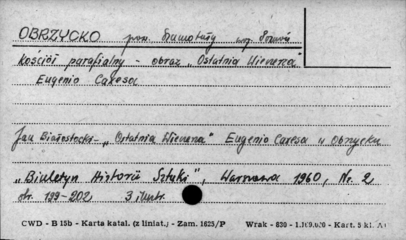 OBRZYCKO pow. Szamotuły woj. Poznań
Kościół parafialny - obraz „Ostatnia Wieczerza"
Eugenio Caxesa
Jan Białostocki - „Ostatnia Wieczerza" Eugenio Caxesa w Obrzycku
„Biuletyn Historii Sztuki", Warszawa 1960, Nr. 2
str. 199-202 3 ilustr.
CWD - B 15b - Karta katal. (z liniat.) - Zam. 1625/P Wrak - 830 - 1.109.000 - Kart. 5 kl. A1